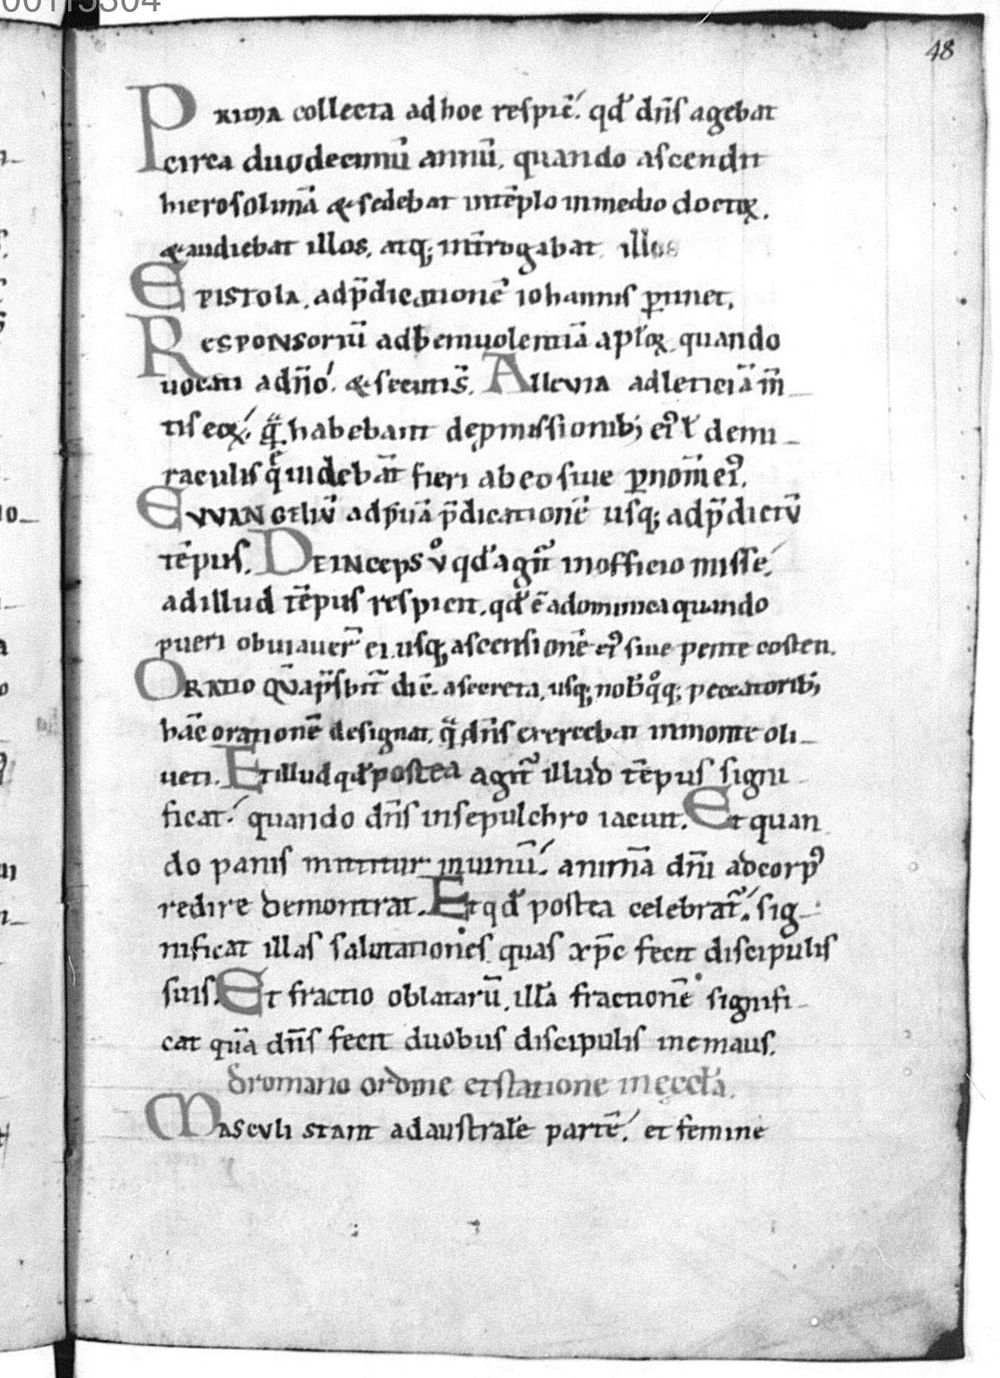 00115304
48
Prima collecta ad hoc respic̄. qđ dn̄s agebat
circa duodecimū annū, quando ascendit
hierosolimā & sedebat intēplo inmedio doctoꝝ.
& audiebat illos, atq; int̄rogabat illos
Epistola. adp̄dicationē iohannis ꝑtinet.
Responsoriū adbeniuolentiā apl'oꝝ quando
uocati adn̄o. & secuti s̄. Alleuia adleticiā m̄
tis eoꝝ. q̄ habebant depmissionib; ei' l' demi
raculis q̄ uidebāt fieri abeo siue ꝑ nom̄ ei'.
Evvangeliū adp̄uā p̄dicationē usq; adp̄dictū
tēpus. Deinceps v̊ qđ agit̄ inofficio misse.
adillud tēpus respicit. qđ ē adominica quando
pueri obuiauer̄ ei. usq; ascensionē ei' siue pente costen.
Oratio quā p̄sbit̄ dic̄. asecreta, usq; nob q̊q; peccatorib;
hāc orationē designat, q̄ dn̄s exercebat inmonte oli
ueti. Et illud qđ postea agit̄ illud tēpus signi
ficat. quando dn̄s insepulchro iacuit. Et quan
do panis mittitur inuinū. animā dn̄i adcorp'
redire demontrat. Et qđ postea celebrat̄. sig
nificat illas salutationes quas xp̄c fecit discipulis
suis. Et fractio oblatarū, illā fractionē signifi
cat quā dn̄s fecit duobus discipulis inemaus.
đ romano ordine et statione in ęccl'a.
Masculi stant adaustralē partē. et femine